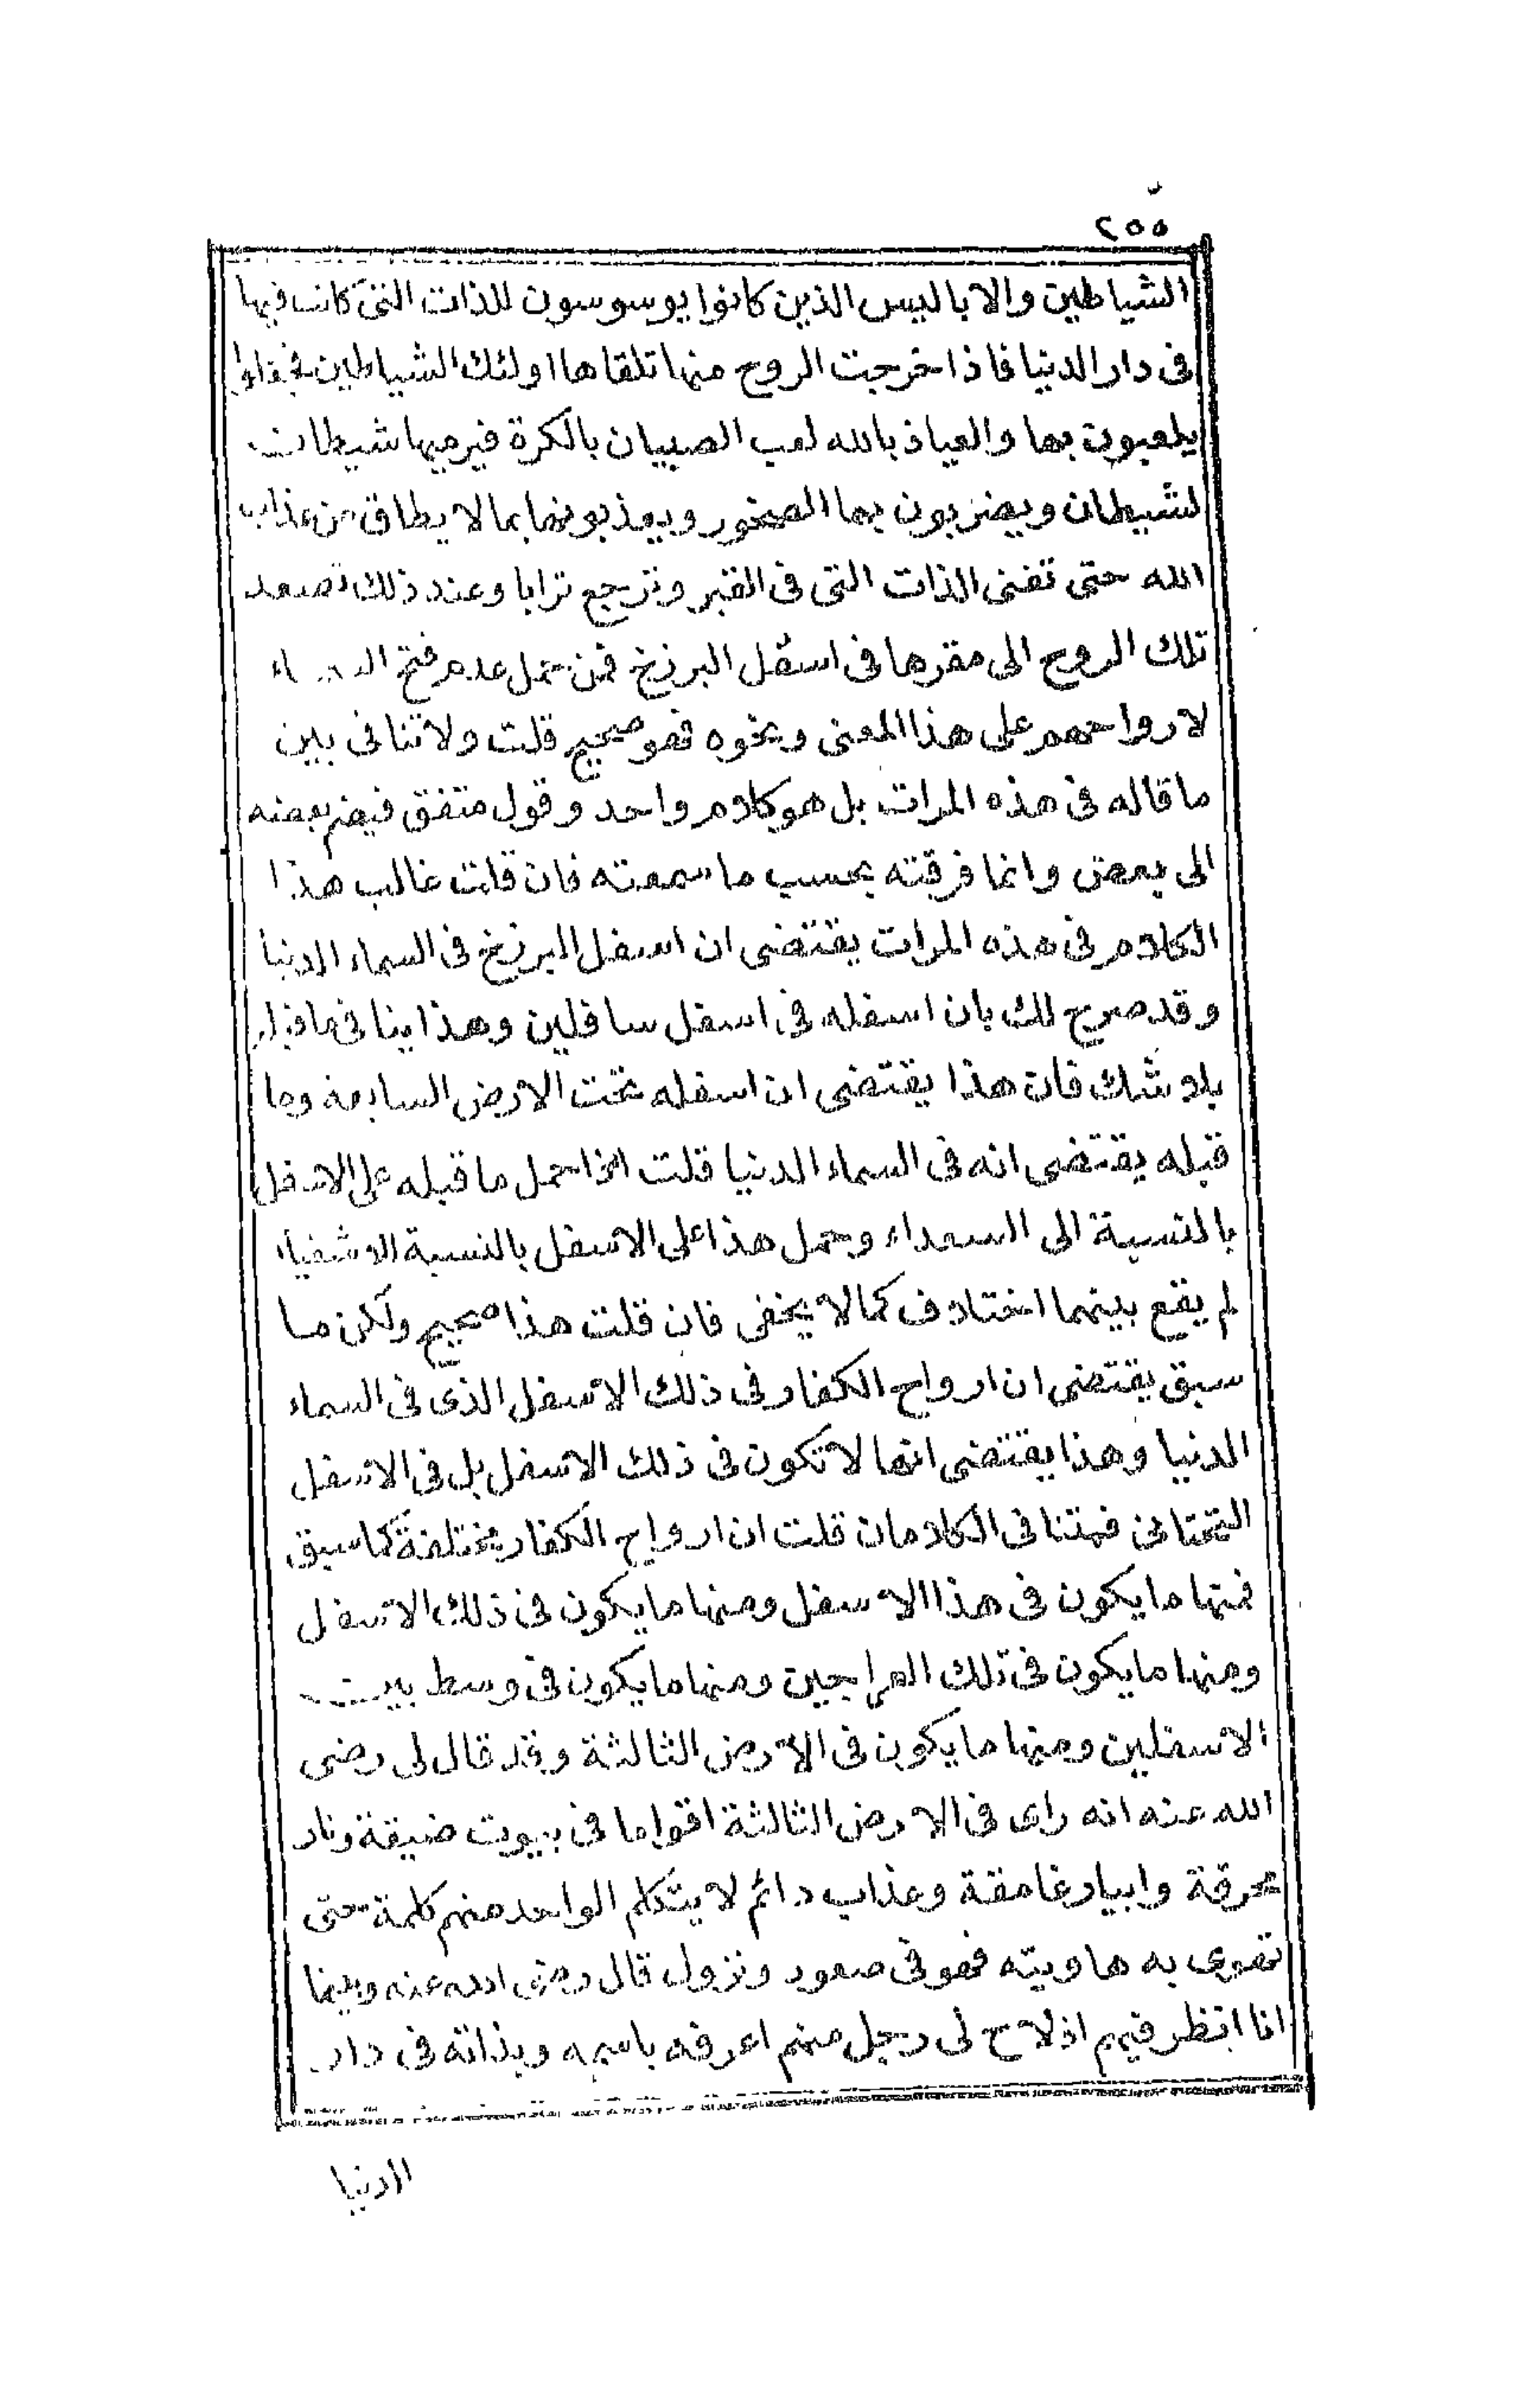 ٢٥٥
الشياطين والاباليس الذين كانوا يوسوسون للذات التى كانت فيها
فى دار الدنيا فاذا خرجت الروح منها تلقاها اولئك الشياطين فجعلوا
يلعبون بها والعياذ بالله لعب الصبيان بالكرة فيرميها شيطان
لشيطان ويضربون بها الصخور ويعذبونها بما لا يطاق من عذاب
الله حتى تفنى الذات التى فى القبر وترجع ترابا وعند ذلك تصعد
تلك الروح الى مقرها فى اسفل البرزخ فمن حمل عدم فتح السماء
لارواحهم على هذا المعنى ونحوه فهو صحيح قلت ولا تنافى بين
ما قاله فى هذه المرات بل هو كلام واحد وقول متفق فيضم بعضه
الى بعض وانما فرقته بحسب ما سمعته فان قلت غالب هذا
الكلام فى هذه المرات يقتضى ان اسفل البرزخ فى السماء الدنيا
وقد صرح لك بان اسفله فى اسفل سافلين وهذا ينافى ما قبله
بلا شك فان هذا يقتضى ان اسفله تحت الارض السابعة وما
قبله يقتضى انه فى السماء الدنيا قلت اذا حمل ما قبله على الاسفل
بالنسبة الى السعداء وحمل هذا على الاسفل بالنسبة الاشقياء
لم يقع بينهما اختلاف كما لا يخفى فان قلت هذا صحيح ولكن ما
سبق يقتضى ان ارواح الكفار فى ذلك الاسفل الذى فى السماء
الدنيا وهذا يقتضى انها لا تكون فى ذلك الاسفل بل فى الاسفل
التحتانى فتنافى الكلامان قلت ان ارواح الكفار مختلفة كما سبق
فمنها ما يكون فى هذا الاسفل ومنها ما يكون فى ذلك الاسفل
ومنها ما يكون فى تلك العراجين ومنها ما يكون فى وسط بيت
الاسفلين ومنها ما يكون فى الارض الثالثة وقد قال لى رضى
الله عنه انه راى فى الارض الثالثة اقواما فى بيوت ضيقة ونار
محرقة وابيار غامقة وعذاب دائم لا يتكلم الواحد منهم كلمة حتى
تهوى به هاويته فهو فى صعود ونزول قال رضى الله عنه وبينما
انا انظر فيهم اذ لاح لى رجل منهم اعرفه باسمه وبذاته فى دار
الدنيا